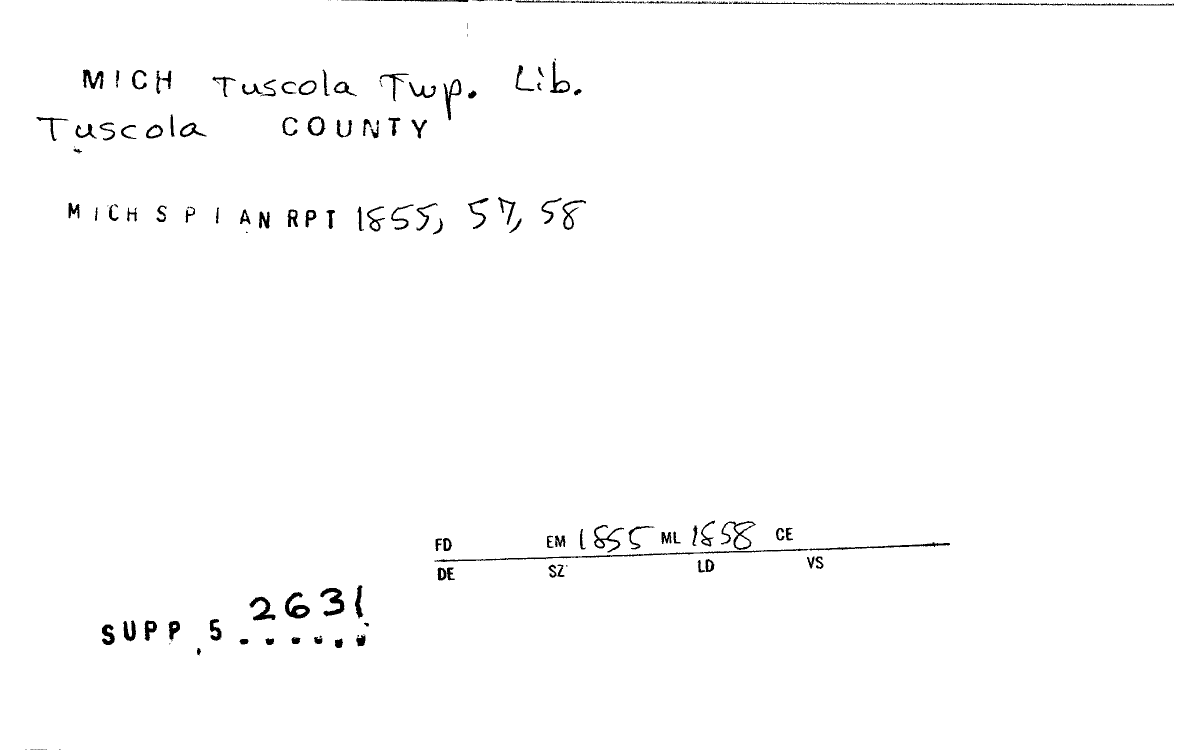 MICH Tuscola Twp. Lib.
Tuscola COUNTY
MICH S P I AN RPT 1855, 57, 58
FD EM 1855 ML 1858 CE
DE SZ LD VS
2631
SUPP 5 ......